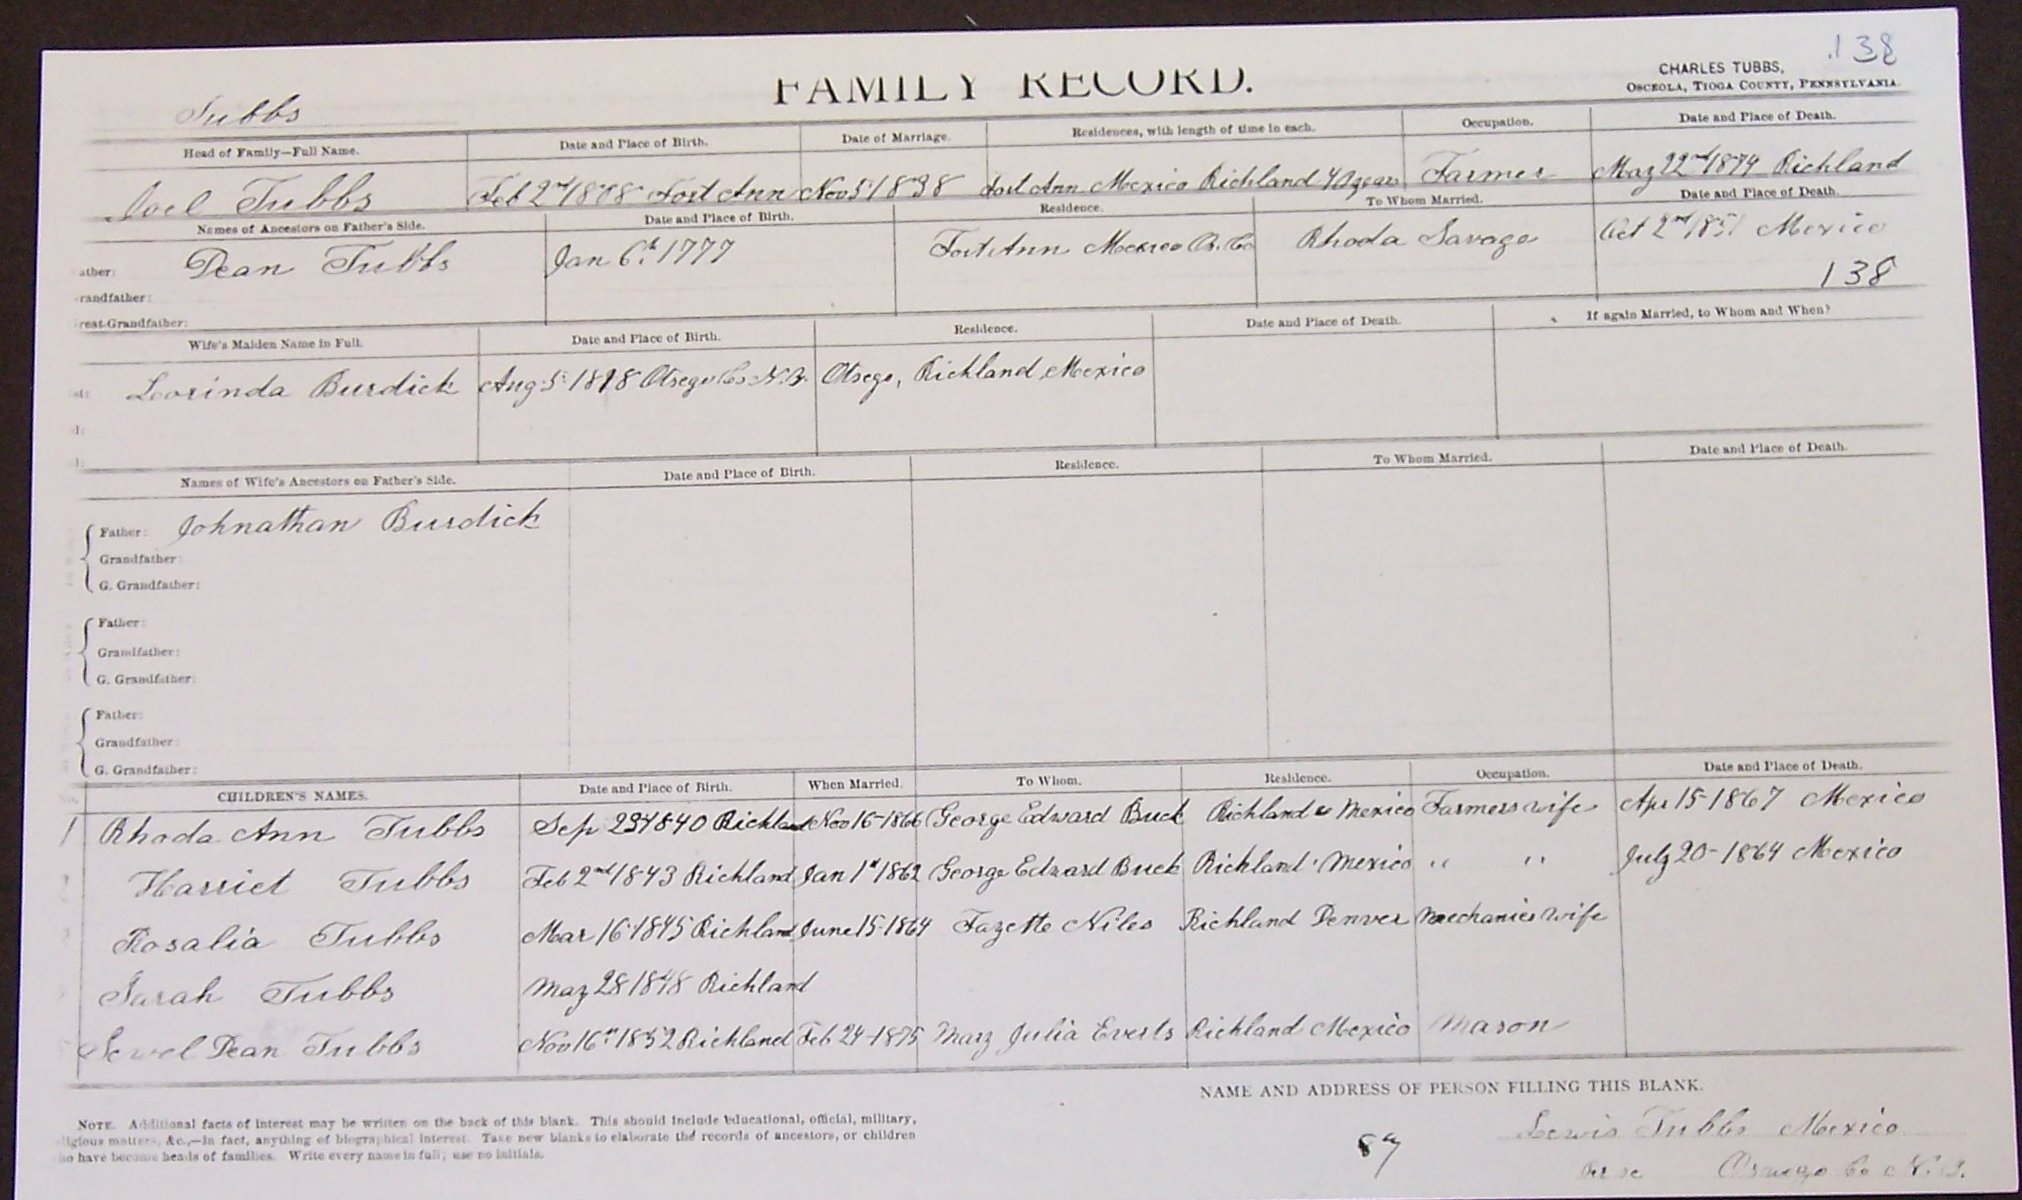 138
FAMILY RECORD.
CHARLES TUBBS,
OSCEOLA, TIOGA COUNTY, PENNSYLVANIA.
Tubbs
Head of Family—Full Name. Date and Place of Birth. Date of Marriage. Residences, with length of time in each. Occupation. Date and Place of Death.
Joel Tubbs Feb 2nd 1808 Fort Ann Nov 5 1838 Fort Ann Mexico Richland 40 years Farmer May 22nd 1874 Richland
Names of Ancestors on Father's Side. Date and Place of Birth. Residence. To Whom Married. Date and Place of Death.
ather: Dean Tubbs Jan 6th 1777 Fort Ann Mexico O. Co Rhoda Savage Oct 2nd 1851 Mexico
randfather: 138
reat-Grandfather:
Wife's Maiden Name in Full. Date and Place of Birth. Residence. Date and Place of Death. If again Married, to Whom and When?
st: Lorinda Burdick Aug 5 1818 Otsego Co N.Y. Otsego, Richland, Mexico
d:
d:
Names of Wife's Ancestors on Father's Side. Date and Place of Birth. Residence. To Whom Married. Date and Place of Death.
Father: Johnathan Burdick
Grandfather:
G. Grandfather:
Father:
Grandfather:
G. Grandfather:
Father:
Grandfather:
G. Grandfather:
CHILDREN'S NAMES. Date and Place of Birth. When Married. To Whom. Residence. Occupation. Date and Place of Death.
1 Rhoda Ann Tubbs Sep 23 1840 Richland Nov 16-1866 George Edward Buck Richland & Mexico Farmers wife Apr 15-1867 Mexico
Harriet Tubbs Feb 2nd 1843 Richland Jan 1st 1862 George Edward Buck Richland Mexico " " July 20-1864 Mexico
Rosalia Tubbs Mar 16 1845 Richland June 15-1864 Fazette Niles Richland Denver Mechanics wife
Sarah Tubbs May 28 1848 Richland
Lewel Dean Tubbs Nov 16th 1852 Richland Feb 24-1875 Mary Julia Everts Richland Mexico Mason
NAME AND ADDRESS OF PERSON FILLING THIS BLANK.
NOTE. Additional facts of interest may be written on the back of this blank. This should include educational, official, military,
ligious matters, &c.,—in fact, anything of biographical interest. Take new blanks to elaborate the records of ancestors, or children
ho have become heads of families. Write every name in full; use no initials.
Lewis Tubbs Mexico
Oswego Co N.Y.